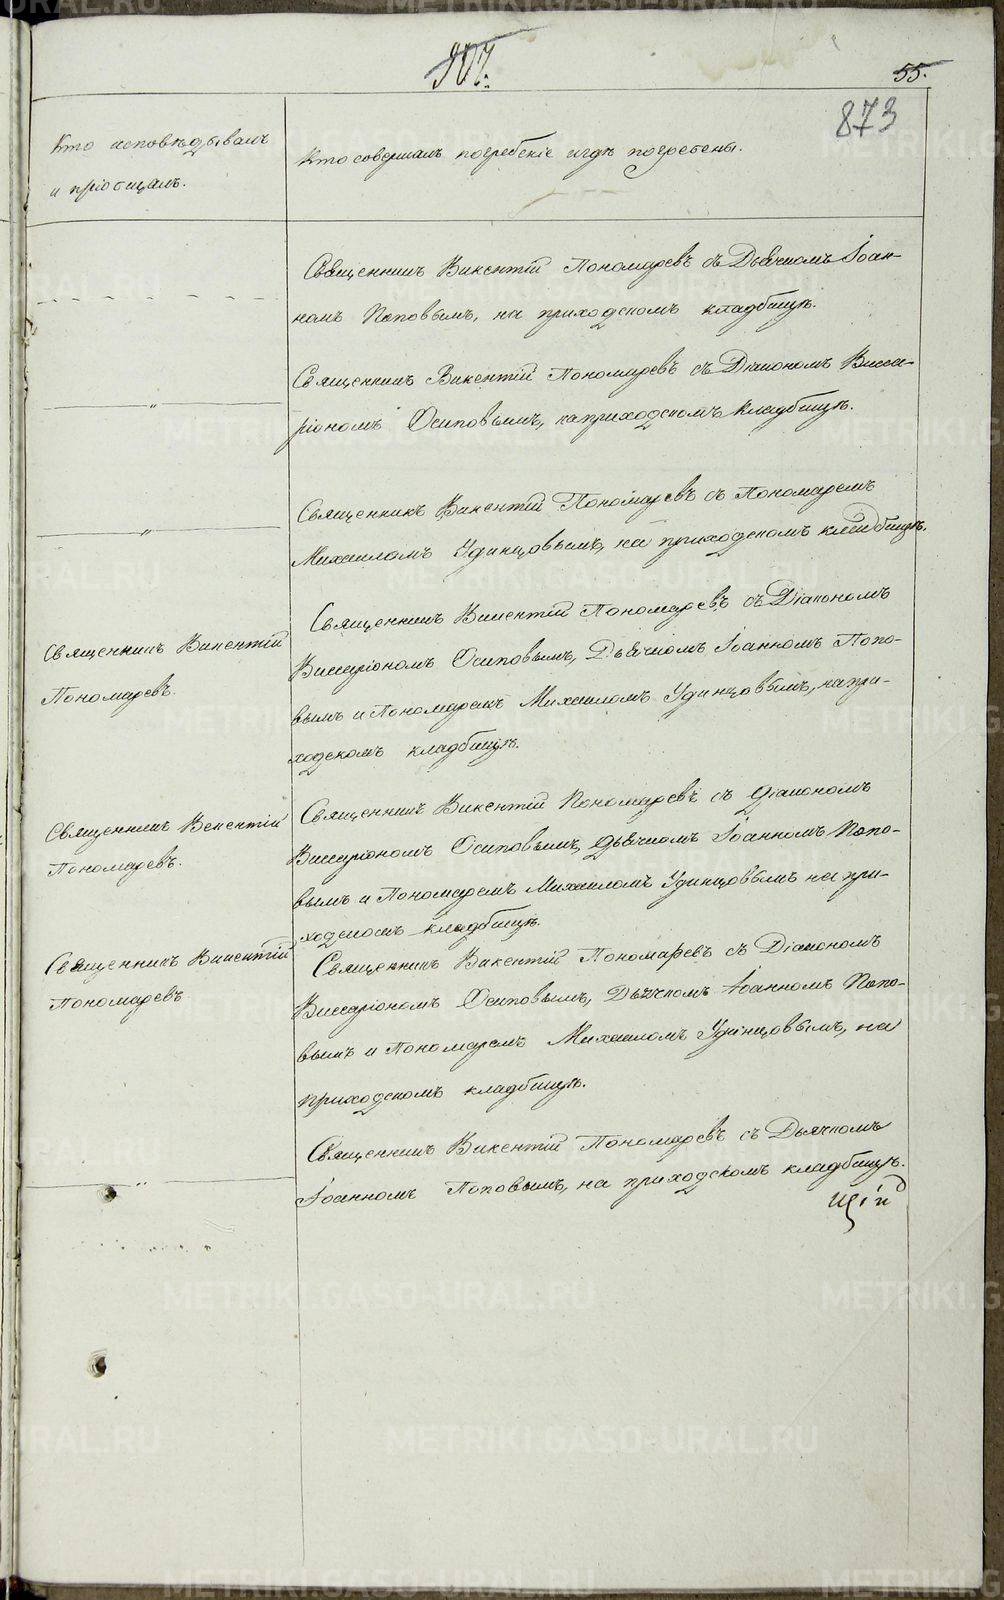 907.
55.
873
Кто исповѣдывалъ
и пріобщалъ.
Кто совершалъ погребеніе и гдѣ погребены.
Священникъ Викентій Пономаревъ съ Дьячкомъ Іоан-
номъ Поповымъ, на приходскомъ кладбищѣ.
Священникъ Викентій Пономаревъ съ Діакономъ Висса-
ріономъ Осиповымъ, на приходскомъ кладбищѣ.
„
Священникъ Викентій Пономаревъ съ Пономаремъ
Михаиломъ Удинцовымъ, на приходскомъ кладбищѣ.
„
Священникъ Викентій
Пономаревъ.
Священникъ Викентій Пономаревъ съ Діакономъ
Виссаріономъ Осиповымъ, Дьячкомъ Іоанномъ Попо-
вымъ и Пономаремъ Михаиломъ Удинцовымъ, на при-
ходскомъ кладбищѣ.
Священникъ Векентій
Пономаревъ.
Священникъ Викентій Пономаревъ съ Діакономъ
Виссаріономъ Осиповымъ, Дьячкомъ Іоанномъ Попо-
вымъ и Пономаремъ Михаиломъ Удинцовымъ на при-
ходскомъ кладбищѣ.
Священникъ Викентій
Пономаревъ
Священникъ Викентій Пономаревъ съ Діакономъ
Виссаріономъ Осиповымъ, Дьячкомъ Іоанномъ Попо-
вымъ и Пономаремъ Михаиломъ Удинцовымъ, на
приходскомъ кладбищѣ.
Священникъ Викентій Пономаревъ съ Дьячкомъ
Іоанномъ Поповымъ, на приходскомъ кладбищѣ.
„
METRIKI.GASO-URAL.RU